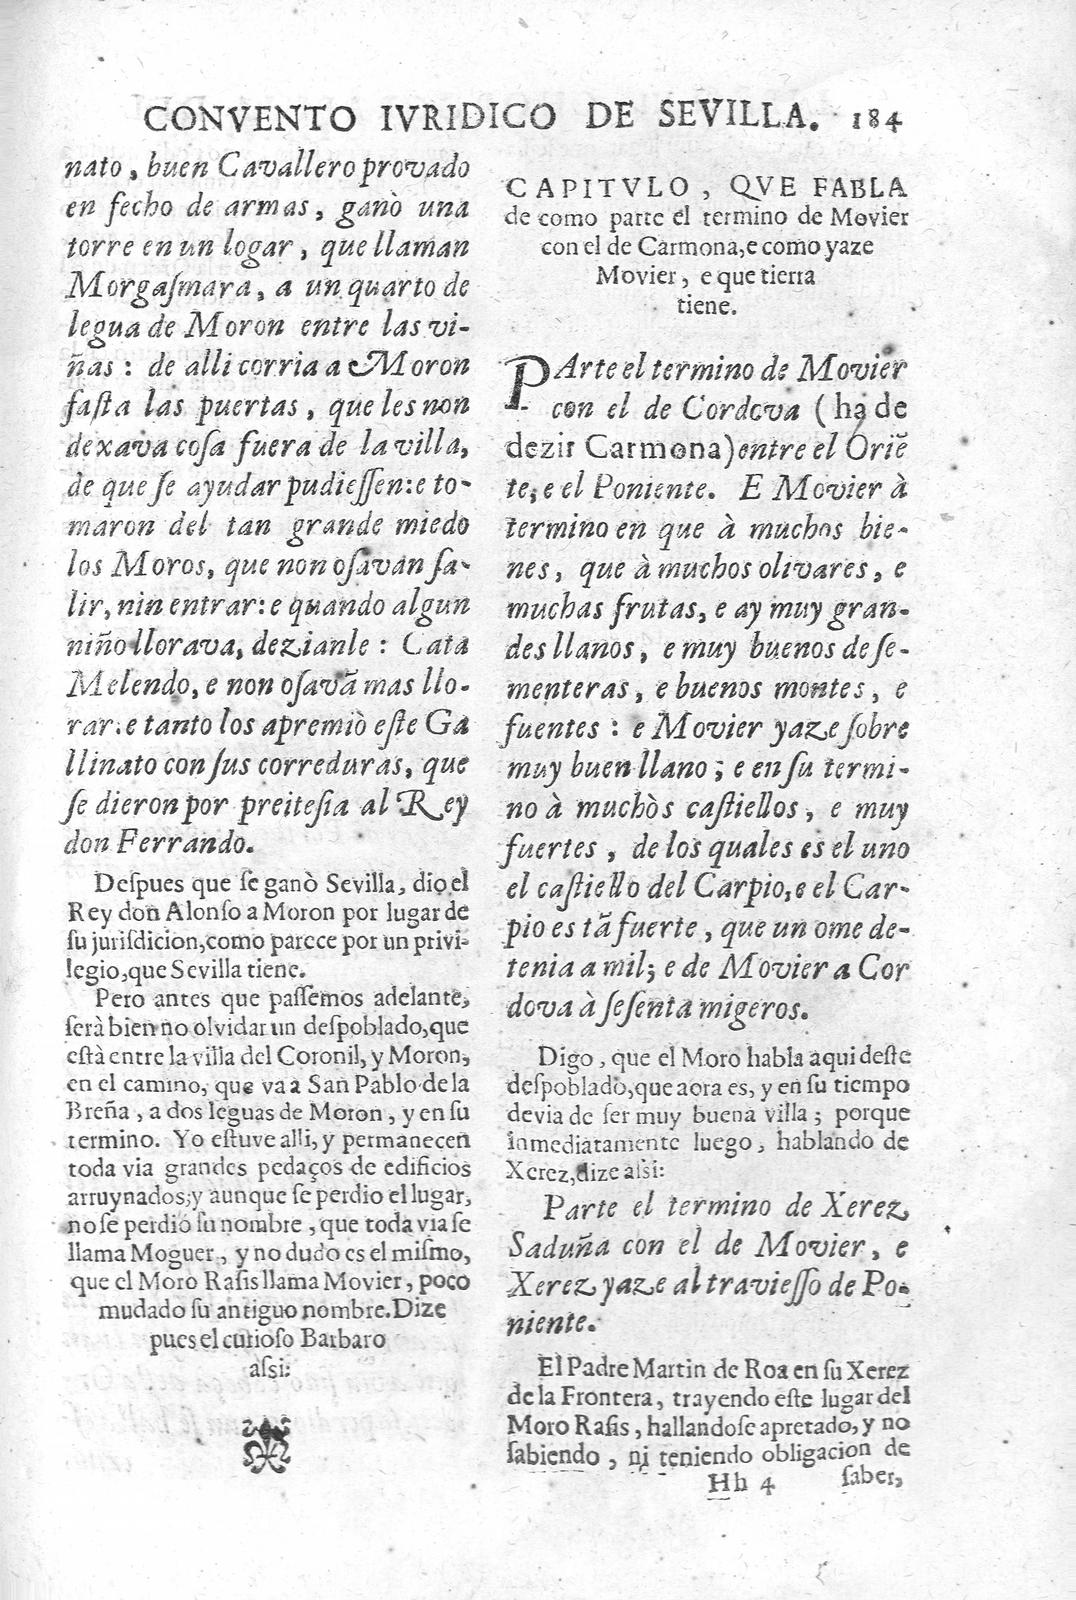 CONVENTO IVRIDICO DE SEVILLA. 184
nato, buen Cavallero provado
en fecho de armas, ganò una
torre en un logar, que llaman
Morgaſmara, a un quarto de
legua de Moron entre las vi-
ñas: de alli corria a Moron
faſta las puertas, que les non
dexava coſa fuera de la villa,
de que ſe ayudar pudieſſen: e to-
maron del tan grande miedo
los Moros, que non oſavan ſa-
lir, nin entrar: e quando algun
niño llorava, dezianle: Cata
Melendo, e non oſavã mas llo-
rar: e tanto los apremiò eſte Ga
llinato con ſus correduras, que
ſe dieron por preiteſia al Rey
don Ferrando.
Deſpues que ſe ganò Sevilla, dio el
Rey don Alonſo a Moron por lugar de
ſu juriſdicion, como parece por un privi-
legio, que Sevilla tiene.
Pero antes que paſſemos adelante,
ſerà bien no olvidar un deſpoblado, que
eſtà entre la villa del Coronil, y Moron,
en el camino, que va a San Pablo de la
Breña, a dos leguas de Moron, y en ſu
termino. Yo eſtuve alli, y permanecen
toda via grandes pedaços de edificios
arruynados; y aunque ſe perdio el lugar,
no ſe perdió ſu nombre, que toda via ſe
llama Moguer, y no dudo es el miſmo,
que el Moro Raſis llama Movier, poco
mudado ſu antiguo nombre. Dize
pues el curioſo Barbaro
aſsi:
CAPITVLO, QVE FABLA
de como parte el termino de Movier
con el de Carmona, e como yaze
Movier, e que tierra
tiene.
PArte el termino de Movier
con el de Cordova (ha de
dezir Carmona) entre el Oriẽ
te, e el Poniente. E Movier à
termino en que à muchos bie-
nes, que à muchos olivares, e
muchas frutas, e ay muy gran-
des llanos, e muy buenos de ſe-
menteras, e buenos montes, e
fuentes: e Movier yaze ſobre
muy buen llano; e en ſu termi-
no à muchòs caſtiellos, e muy
fuertes, de los quales es el uno
el caſtiello del Carpio, e el Car-
pio es tã fuerte, que un ome de-
tenia a mil; e de Movier a Cor
dova à ſeſenta migeros.
Digo, que el Moro habla aqui deſte
deſpoblado, que aora es, y en ſu tiempo
devia de ſer muy buena villa; porque
inmediatamente luego, hablando de
Xerez, dize aſsi:
Parte el termino de Xerez
Saduña con el de Movier, e
Xerez yaze al travieſſo de Po-
niente.
El Padre Martin de Roa en ſu Xerez
de la Frontera, trayendo eſte lugar del
Moro Raſis, hallandoſe apretado, y no
ſabiendo, ni teniendo obligacion de
Hh 4 ſaber,